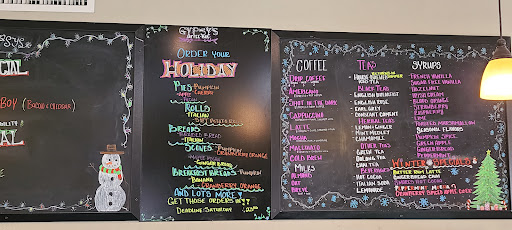 CIAL
BOY (BACON & CHEDDAR)
AL
GYPSY'S
ORDER YOUR
HOLIDAY
PIES: PUMPKIN
APPLE CHERRY
ROLLS
ITALIAN
BREADS
SCONES PUMPKIN
CRANBERRY ORANGE
BREAKFAST BREADS PUMPKIN
BANANA
CRANBERRY ORANGE
AND LOTS MORE
GET THOSE ORDERS IN!!
DEADLINE: SATURDAY
COFFEE
DRIP COFFEE
AMERICANO
SHOT IN THE DARK
CAPPUCCINO
LATTE
MOCHA
MACCHIATO
COLD BREW
MILKS
ALMOND
OAT
BREVE
TEAS
HOUSE BREWED
ICED TEA
BLACK TEAS
ENGLISH BREAKFAST
ENGLISH ROSE
EARL GREY
CONSTANT COMMENT
HERBAL TEAS
LEMON GINGER
MINT MEDLEY
CHAMOMILE
OTHER TEAS
GREEN TEA
OOLONG TEA
CHAI TEA
BEVERAGES
ICED TEA
ITALIAN SODA
LEMONADE
SYRUPS
FRENCH VANILLA
SUGAR FREE VANILLA
HAZELNUT
IRISH CREAM
BLOOD ORANGE
STRAWBERRY
RASPBERRY
LIME
TOASTED MARSHMALLOW
SEASONAL FLAVORS
PUMPKIN SPICE
GREEN APPLE
GINGERBREAD
PEPPERMINT
WINTER SPECIALS
BUTTER RUM LATTE
GINGERBREAD CHAI
PEPPERMINT MOCHA
CRANBERRY SPICED APPLE CIDER